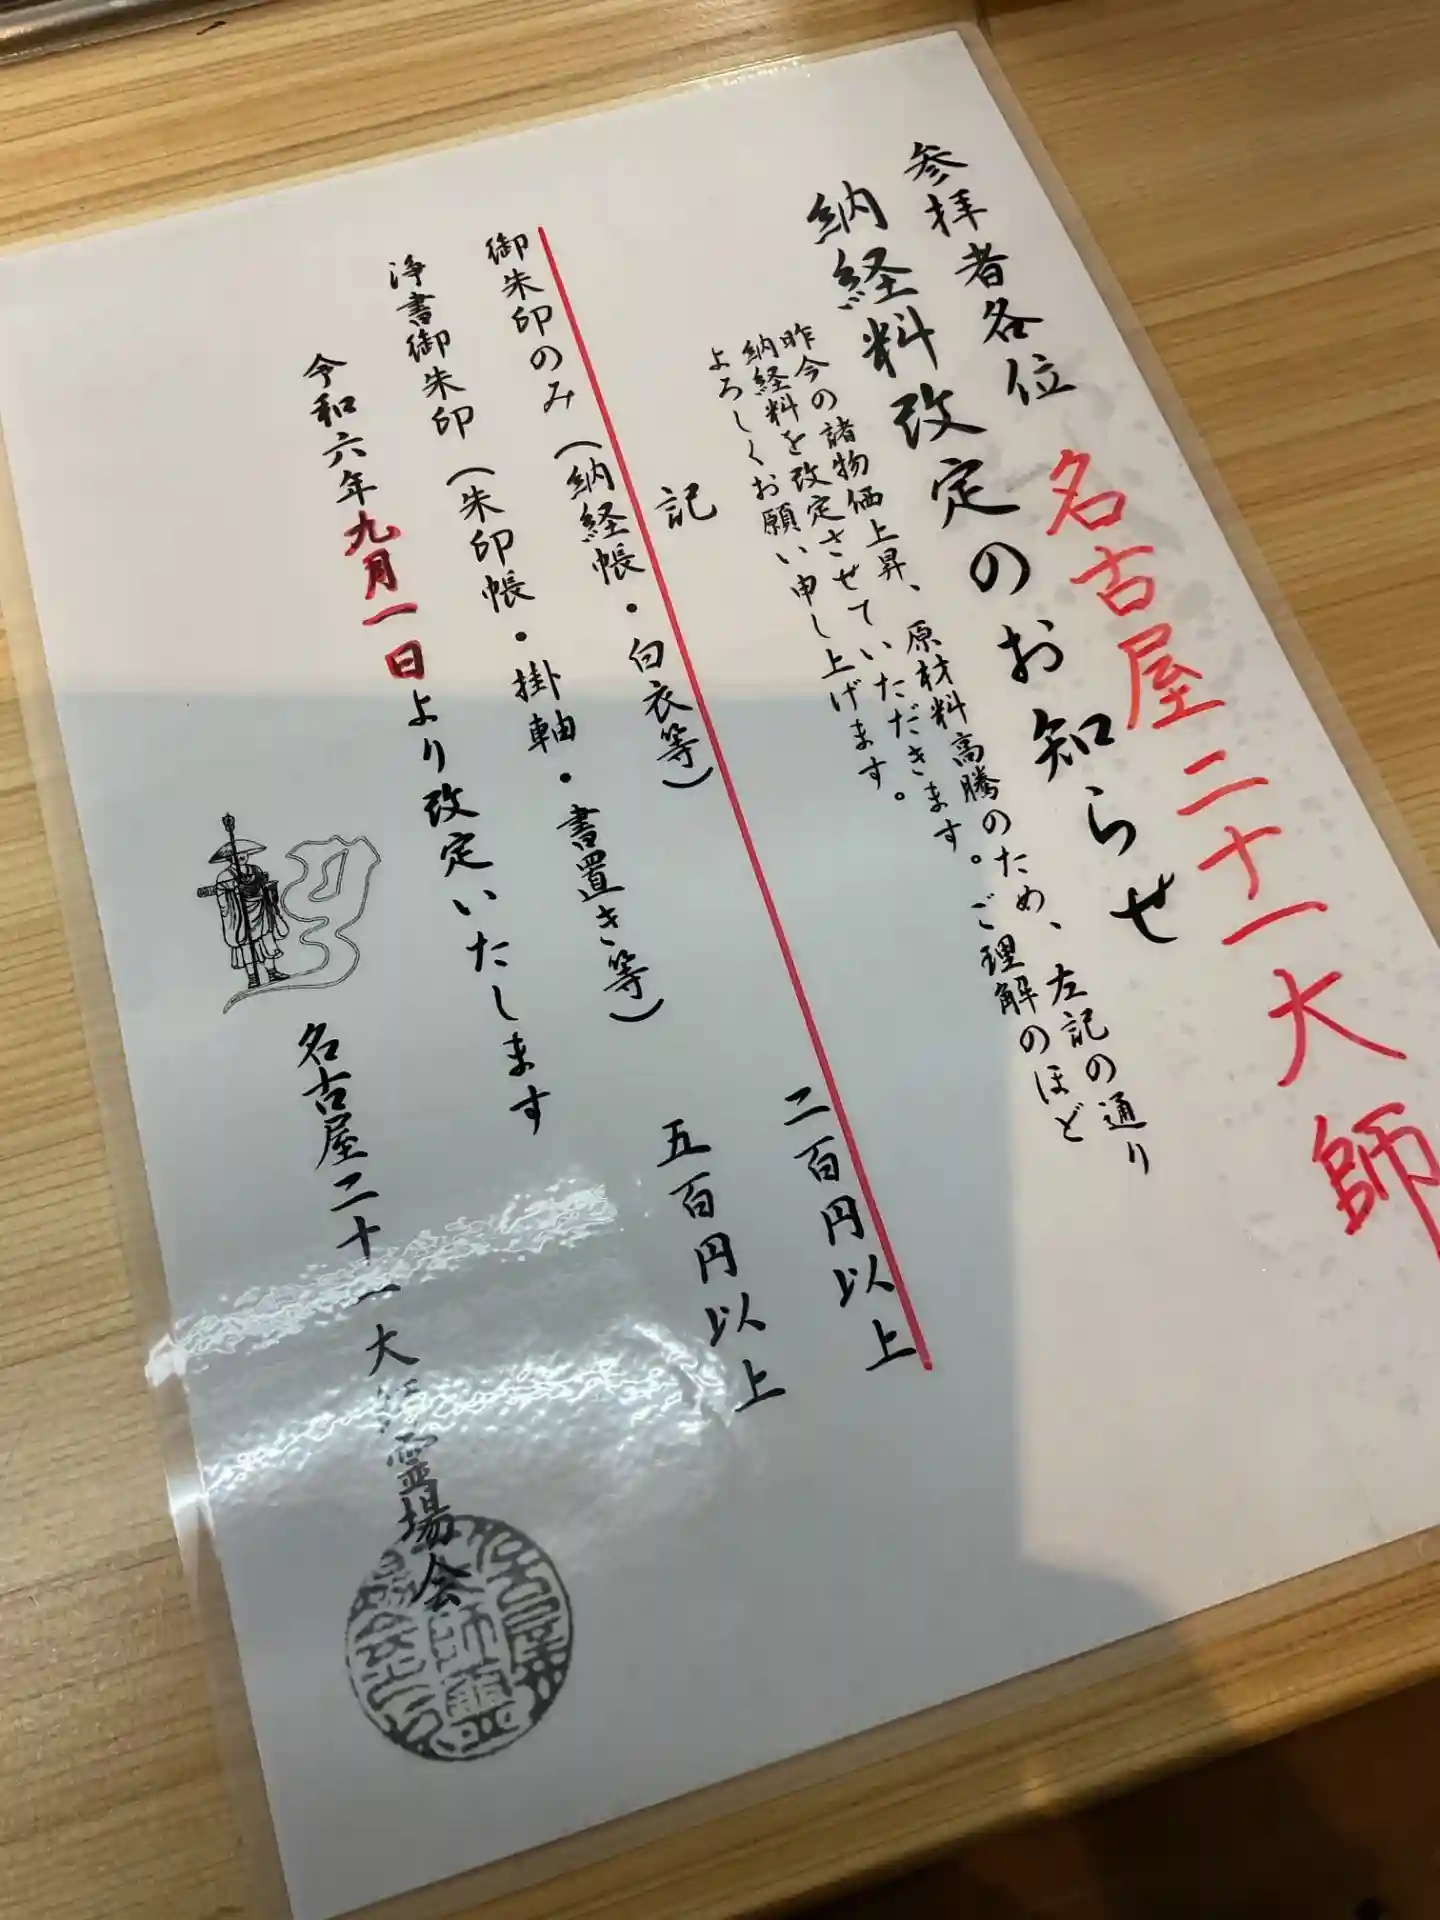 参拝者各位
名古屋二十一大師
納経料改定のお知らせ
昨今の諸物価上昇、原材料高騰のため、左記の通り
納経料を改定させていただきます。ご理解のほど
よろしくお願い申し上げます。
記
御朱印のみ(納経帳・白衣等) 二百円以上
浄書御朱印(朱印帳・掛軸・書置き等) 五百円以上
令和六年九月一日より改定いたします
名古屋二十一大師霊場会